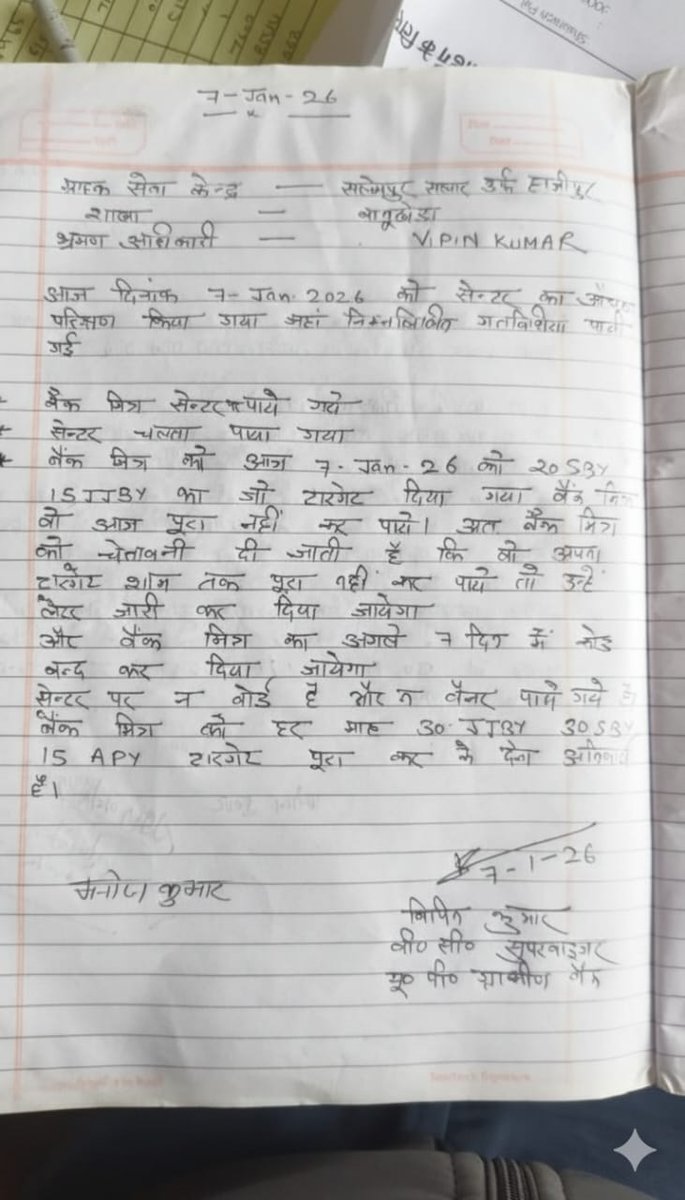 7-Jan-26
ग्राहक सेवा केन्द्र — सालेमपुर सादार उर्फ हाजीपुर
शाखा —
भ्रमण अधिकारी — VIPIN KUMAR
आज दिनांक 7-Jan-2026 को सेन्टर का औचक
परिक्षण किया गया जहां निम्नलिखित गतविधिया पायी
गई
बैंक मित्र सेन्टर पर पाये गये
सेन्टर चलता पाया गया
बैंक मित्र को आज 7-Jan-26 को 20 SBY
15 JJBY का जो टारगेट दिया गया बैंक मित्र
वो आज पूरा नहीं कर पाये। अत बैंक मित्र
को चेतावनी दी जाती है कि वो अपना
टारगेट शाम तक पूरा नहीं कर पाये तो उन्हें
लैटर जारी कर दिया जायेगा
और बैंक मित्र का अगले 7 दिन में कोड
बन्द कर दिया जायेगा
सेन्टर पर न बोर्ड है और न बैनर पाये गये है
बैंक मित्र को हर माह 30 JJBY 30 SBY
15 APY टारगेट पूरा कर के देना अनिवार्य
है।
7-1-26
मनोज कुमार
विपिन कुमार
बी० सी० सुपरवाइजर
यू० पी० ग्रामीण बैंक